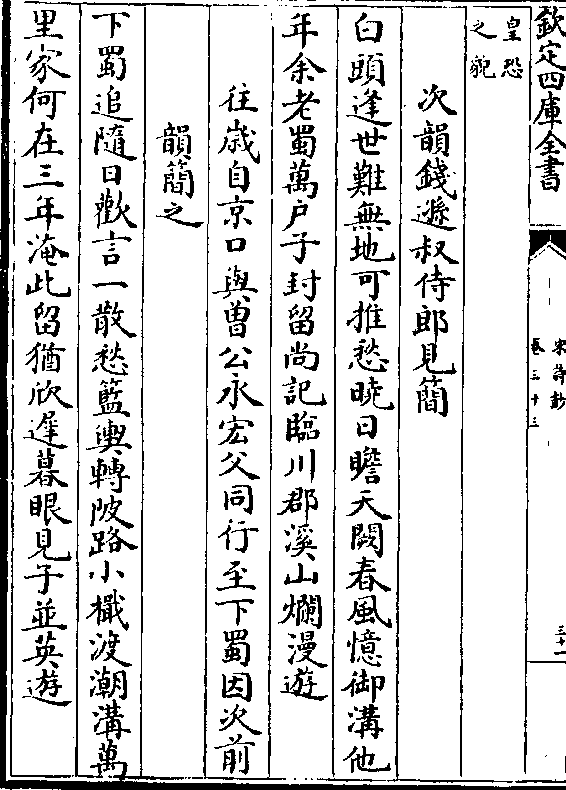 欽定四庫全書
宋詩鈔
卷三十三
三十一
皇恐
之貌
次韻錢遜叔侍郎見簡
白頭逢世難無地可推愁曉日瞻天闕春風憶御溝他
年余老蜀萬户子封留尚記臨川郡溪山爛漫遊
往歲自京口與曽公永宏父同行至下蜀因次前
韻簡之
下蜀追隨日歡言一散愁籃輿轉陂路小檝渡潮溝萬
里家何在三年淹此留猶欣遲暮眼見子並英遊